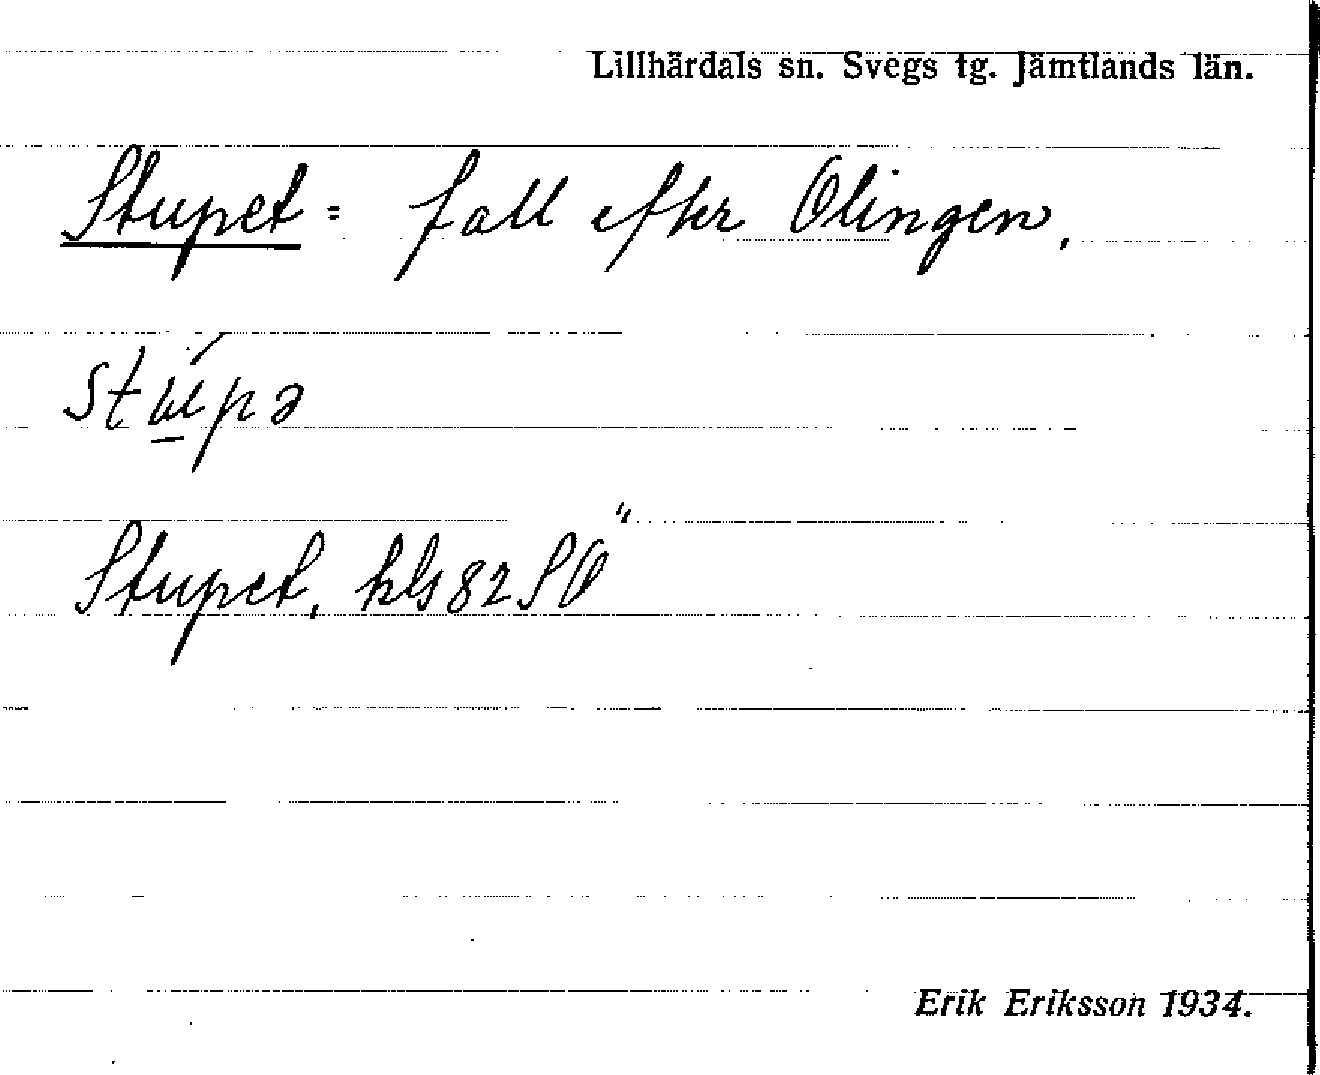 Lillhärdals sn. Svegs tg. Jämtlands län.
Stupet = fall efter Olingen.
Stupet, kls 82 SÖ
Erik Eriksson 1934.